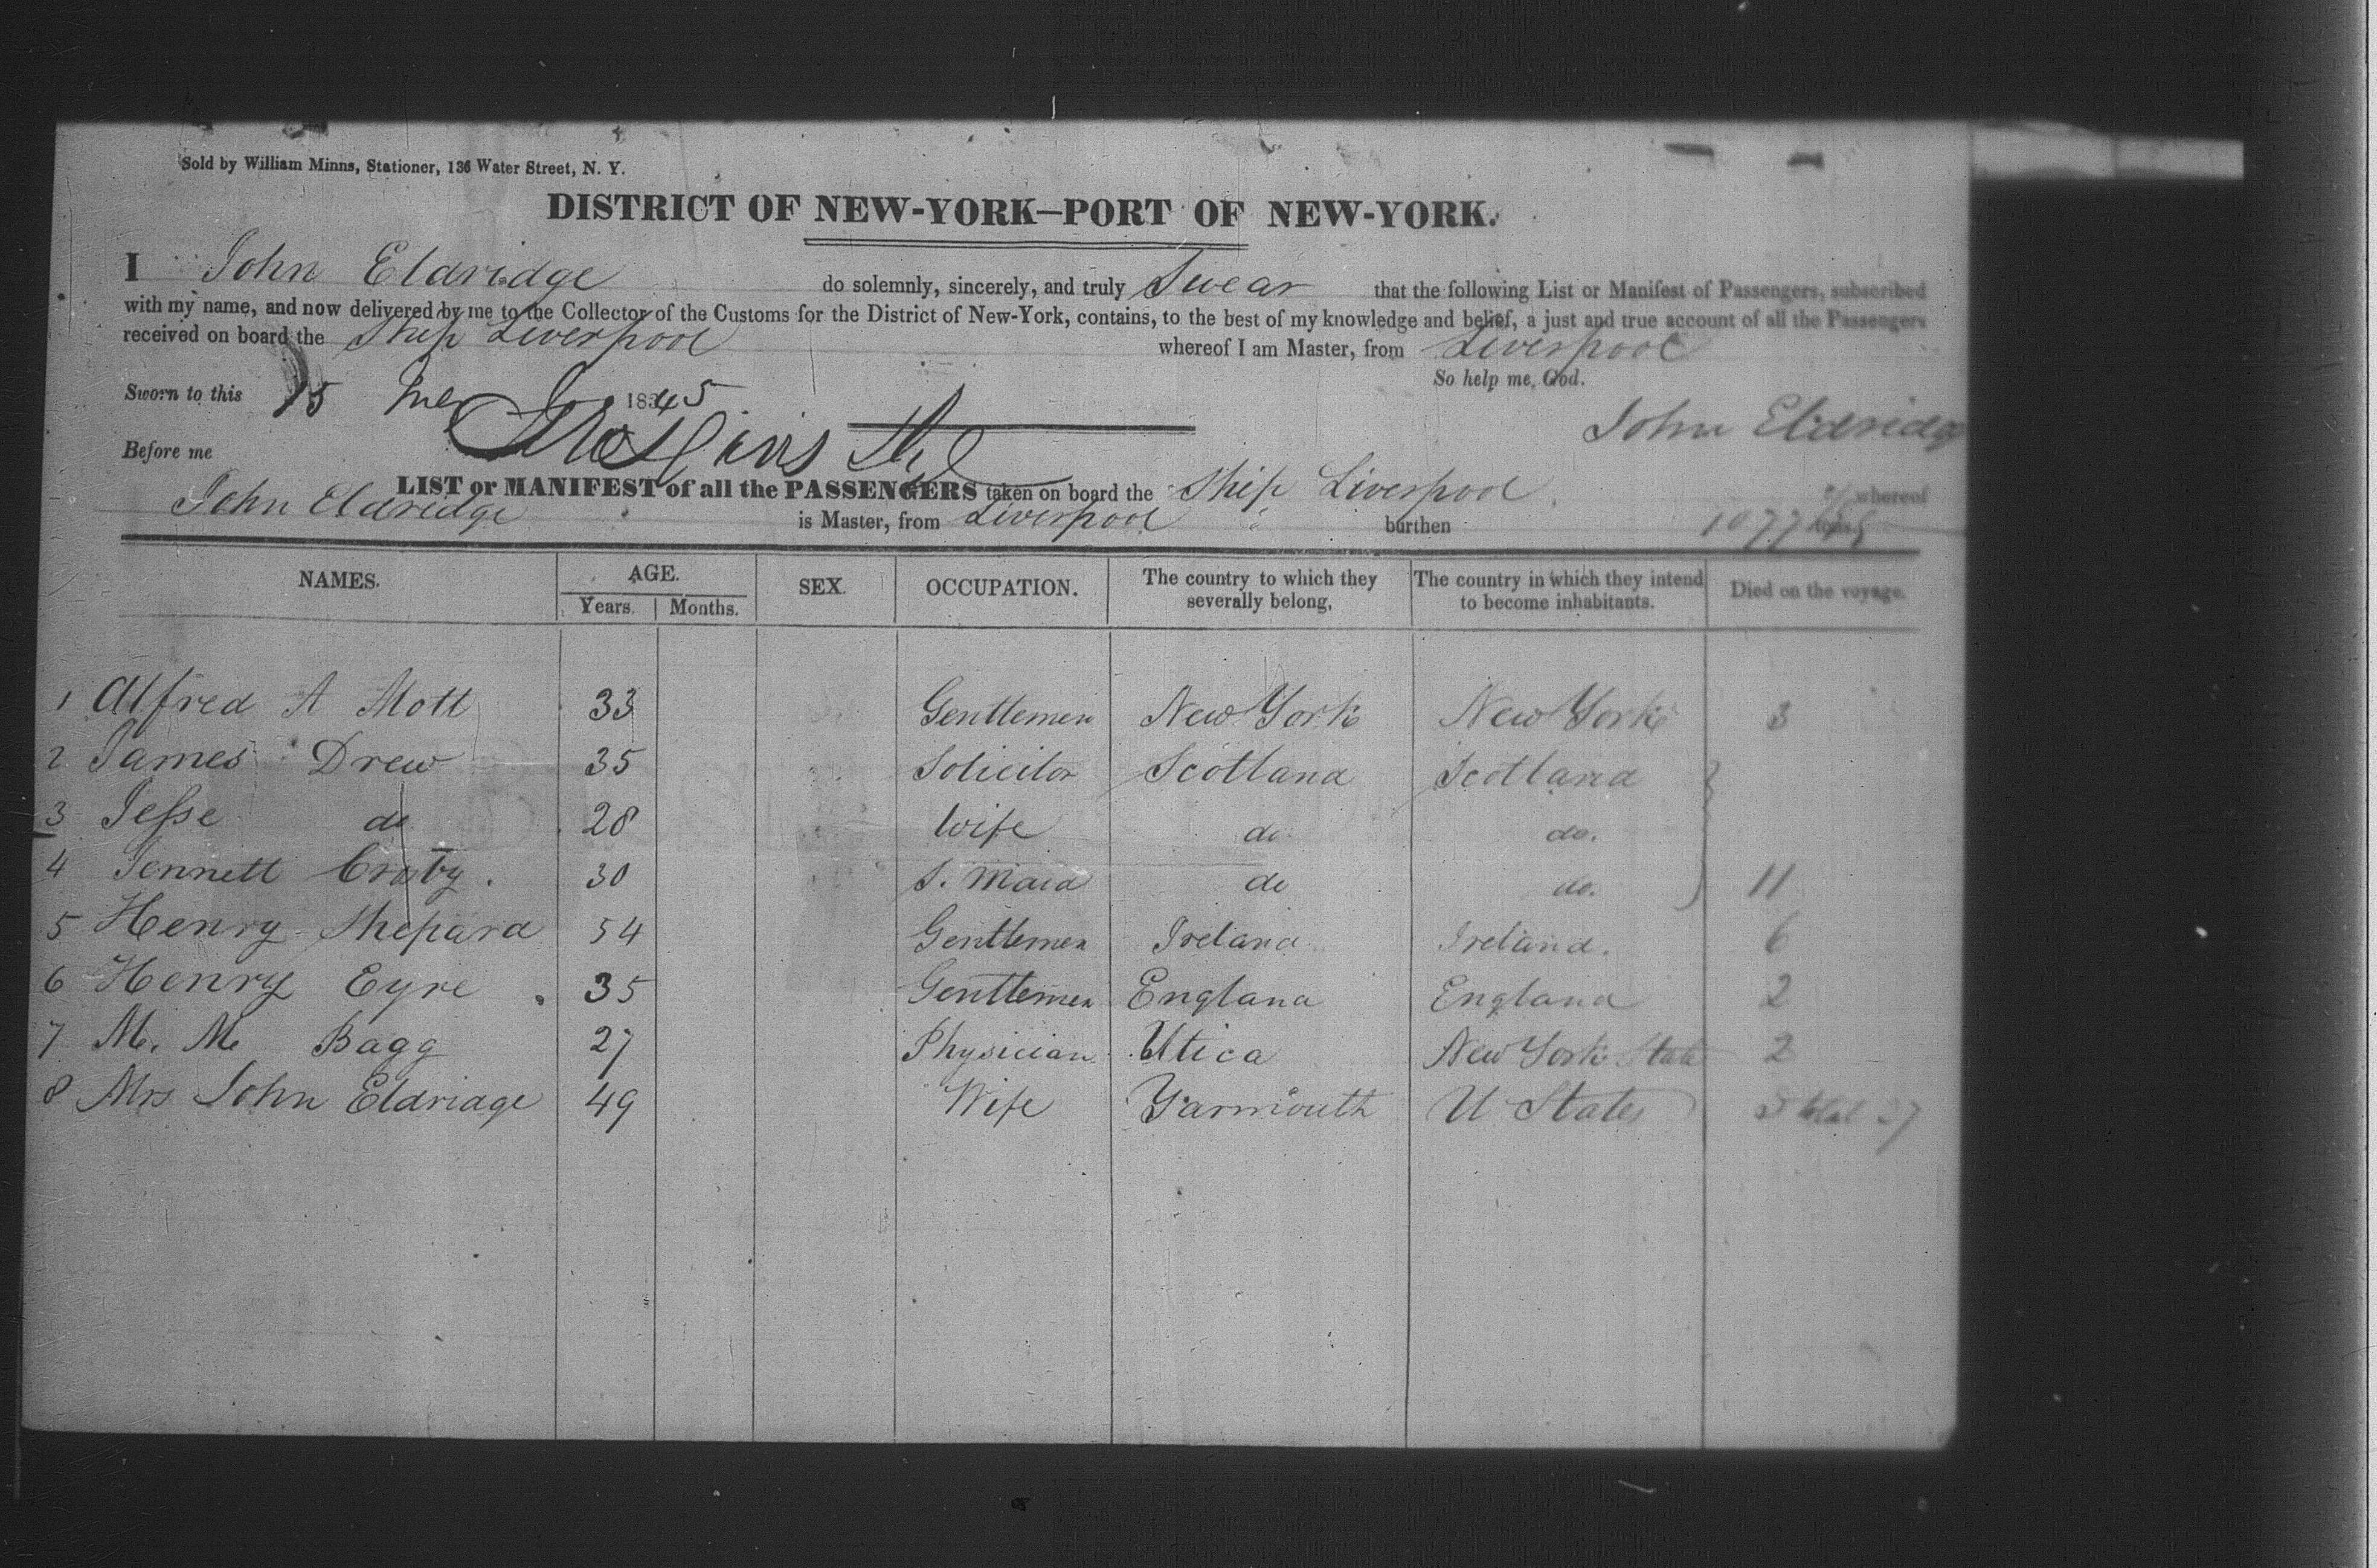 Sold by William Minns, Stationer, 136 Water Street, N. Y.
DISTRICT OF NEW-YORK—PORT OF NEW-YORK.
I John Eldridge do solemnly, sincerely, and truly Swear that the following List or Manifest of Passengers, subscribed
with my name, and now delivered by me to the Collector of the Customs for the District of New-York, contains, to the best of my knowledge and belief, a just and true account of all the Passengers
received on board the Ship Liverpool whereof I am Master, from Liverpool
So help me, God.
Sworn to this 15 1845
John Eldridge
Before me
LIST or MANIFEST of all the PASSENGERS taken on board the Ship Liverpool whereof
John Eldridge is Master, from Liverpool burthen 1077 tons
NAMES. AGE. SEX. OCCUPATION. The country to which they severally belong, The country in which they intend to become inhabitants. Died on the voyage.
Years. Months.
1 Alfred A Mott 33 Gentlemen New York New York 3
2 James Drew 35 Solicitor Scotland Scotland
3 Jesse do 28 Wife do do.
4 Jennett Crosby. 30 S. Maid do do. 11
5 Henry Shepard 54 Gentlemen Ireland Ireland. 6
6 Henry Eyre 35 Gentlemen England England 2
7 M. M Bagg 27 Physician Utica New York State 2
8 Mrs John Eldridge 49 Wife Yarmouth U States